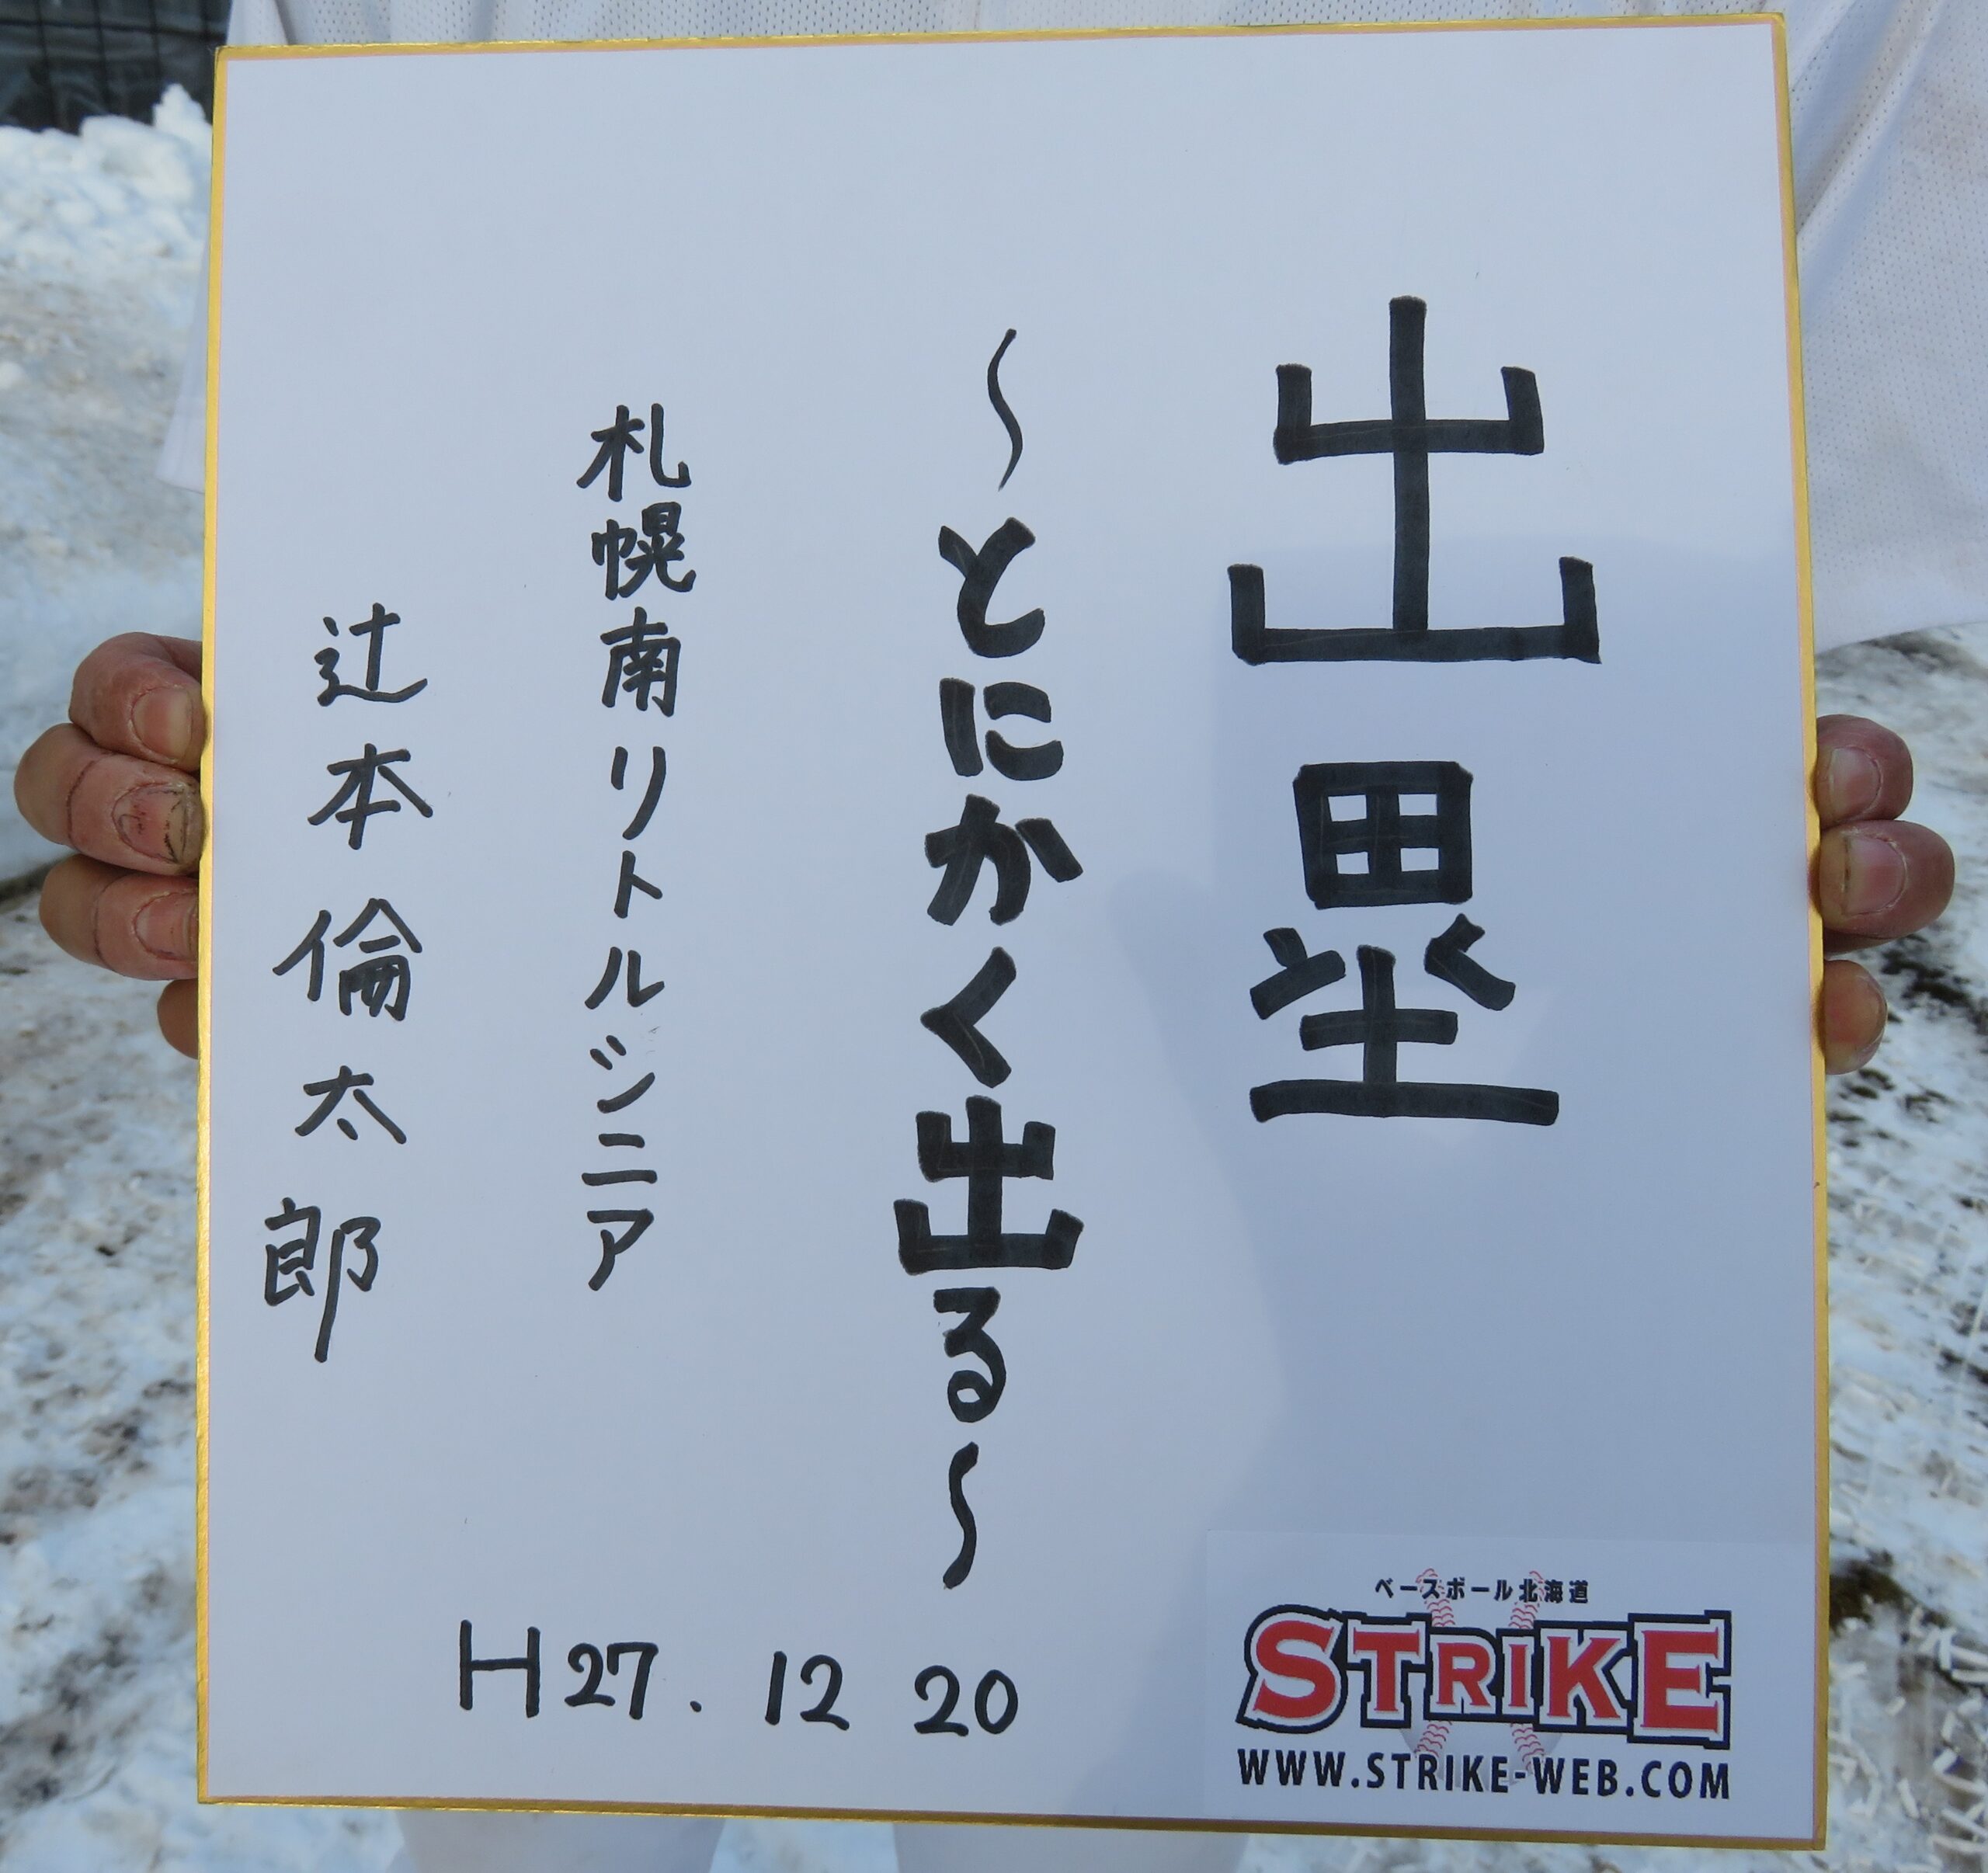 出塁
～とにかく出る～
札幌南リトルシニア
辻本倫太郎
H27.12 20
ベースボール北海道
STRIKE
WWW.STRIKE-WEB.COM